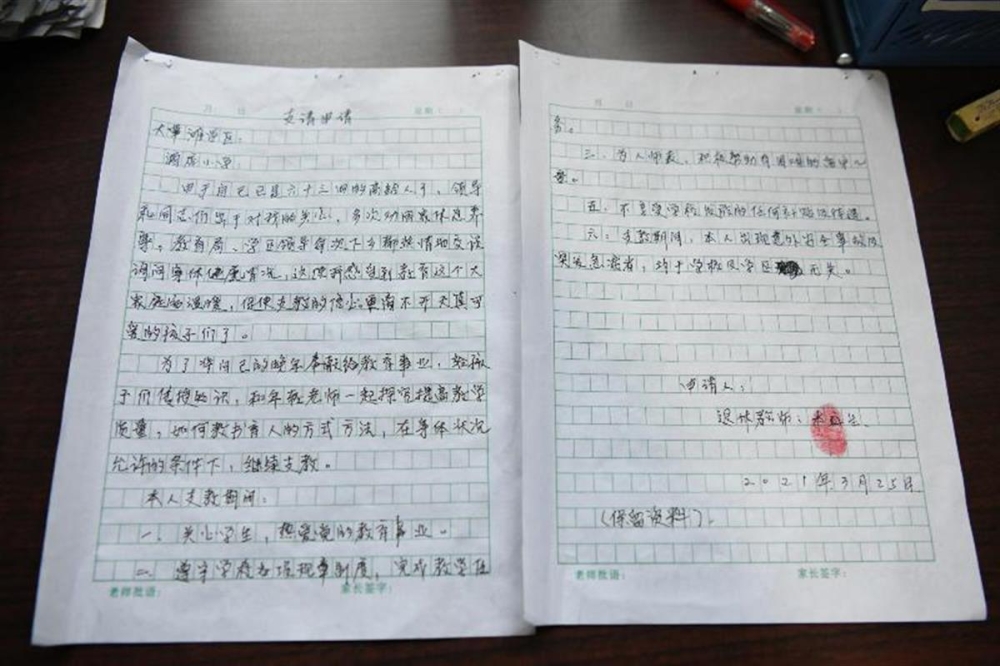 月 日 星期（ ）
支请申请
大潭滩学区：
酒店小学：
由于自己已是六十三回的高龄人了，领导
和同志们出于对我的关心，多次劝阻我休息养
导。教育局、学区领导每次下乡都热情地交谈
询问导体健康情况，这使我感觉到教育这个大
家庭的温暖，促使支教的信心更离不开天真可
爱的孩子们了。
为了将自己的晚年奉献给教育事业，给孩
子们传授知识，和年轻老师一起探究提高教学
质量，如何教书育人的方式方法，在导体状况
允许的条件下，继续支教。
本人支教期间：
一、关心学生，热爱党的教育事业。
二、遵守学校各项规章制度，完成教学任
老师批语： 家长签字：
月 日 星期（ ）
务。
三、为人师表，积极帮助有困难的留守儿
童。
五、不享受学校发放的任何补贴及待遇。
六、支教期间，本人出现意外安全事故及
突发急病者，均于学校及学区无关。
申请人：
退休教师：
2021年3月25日
（保留资料）。
老师批语： 家长签字：